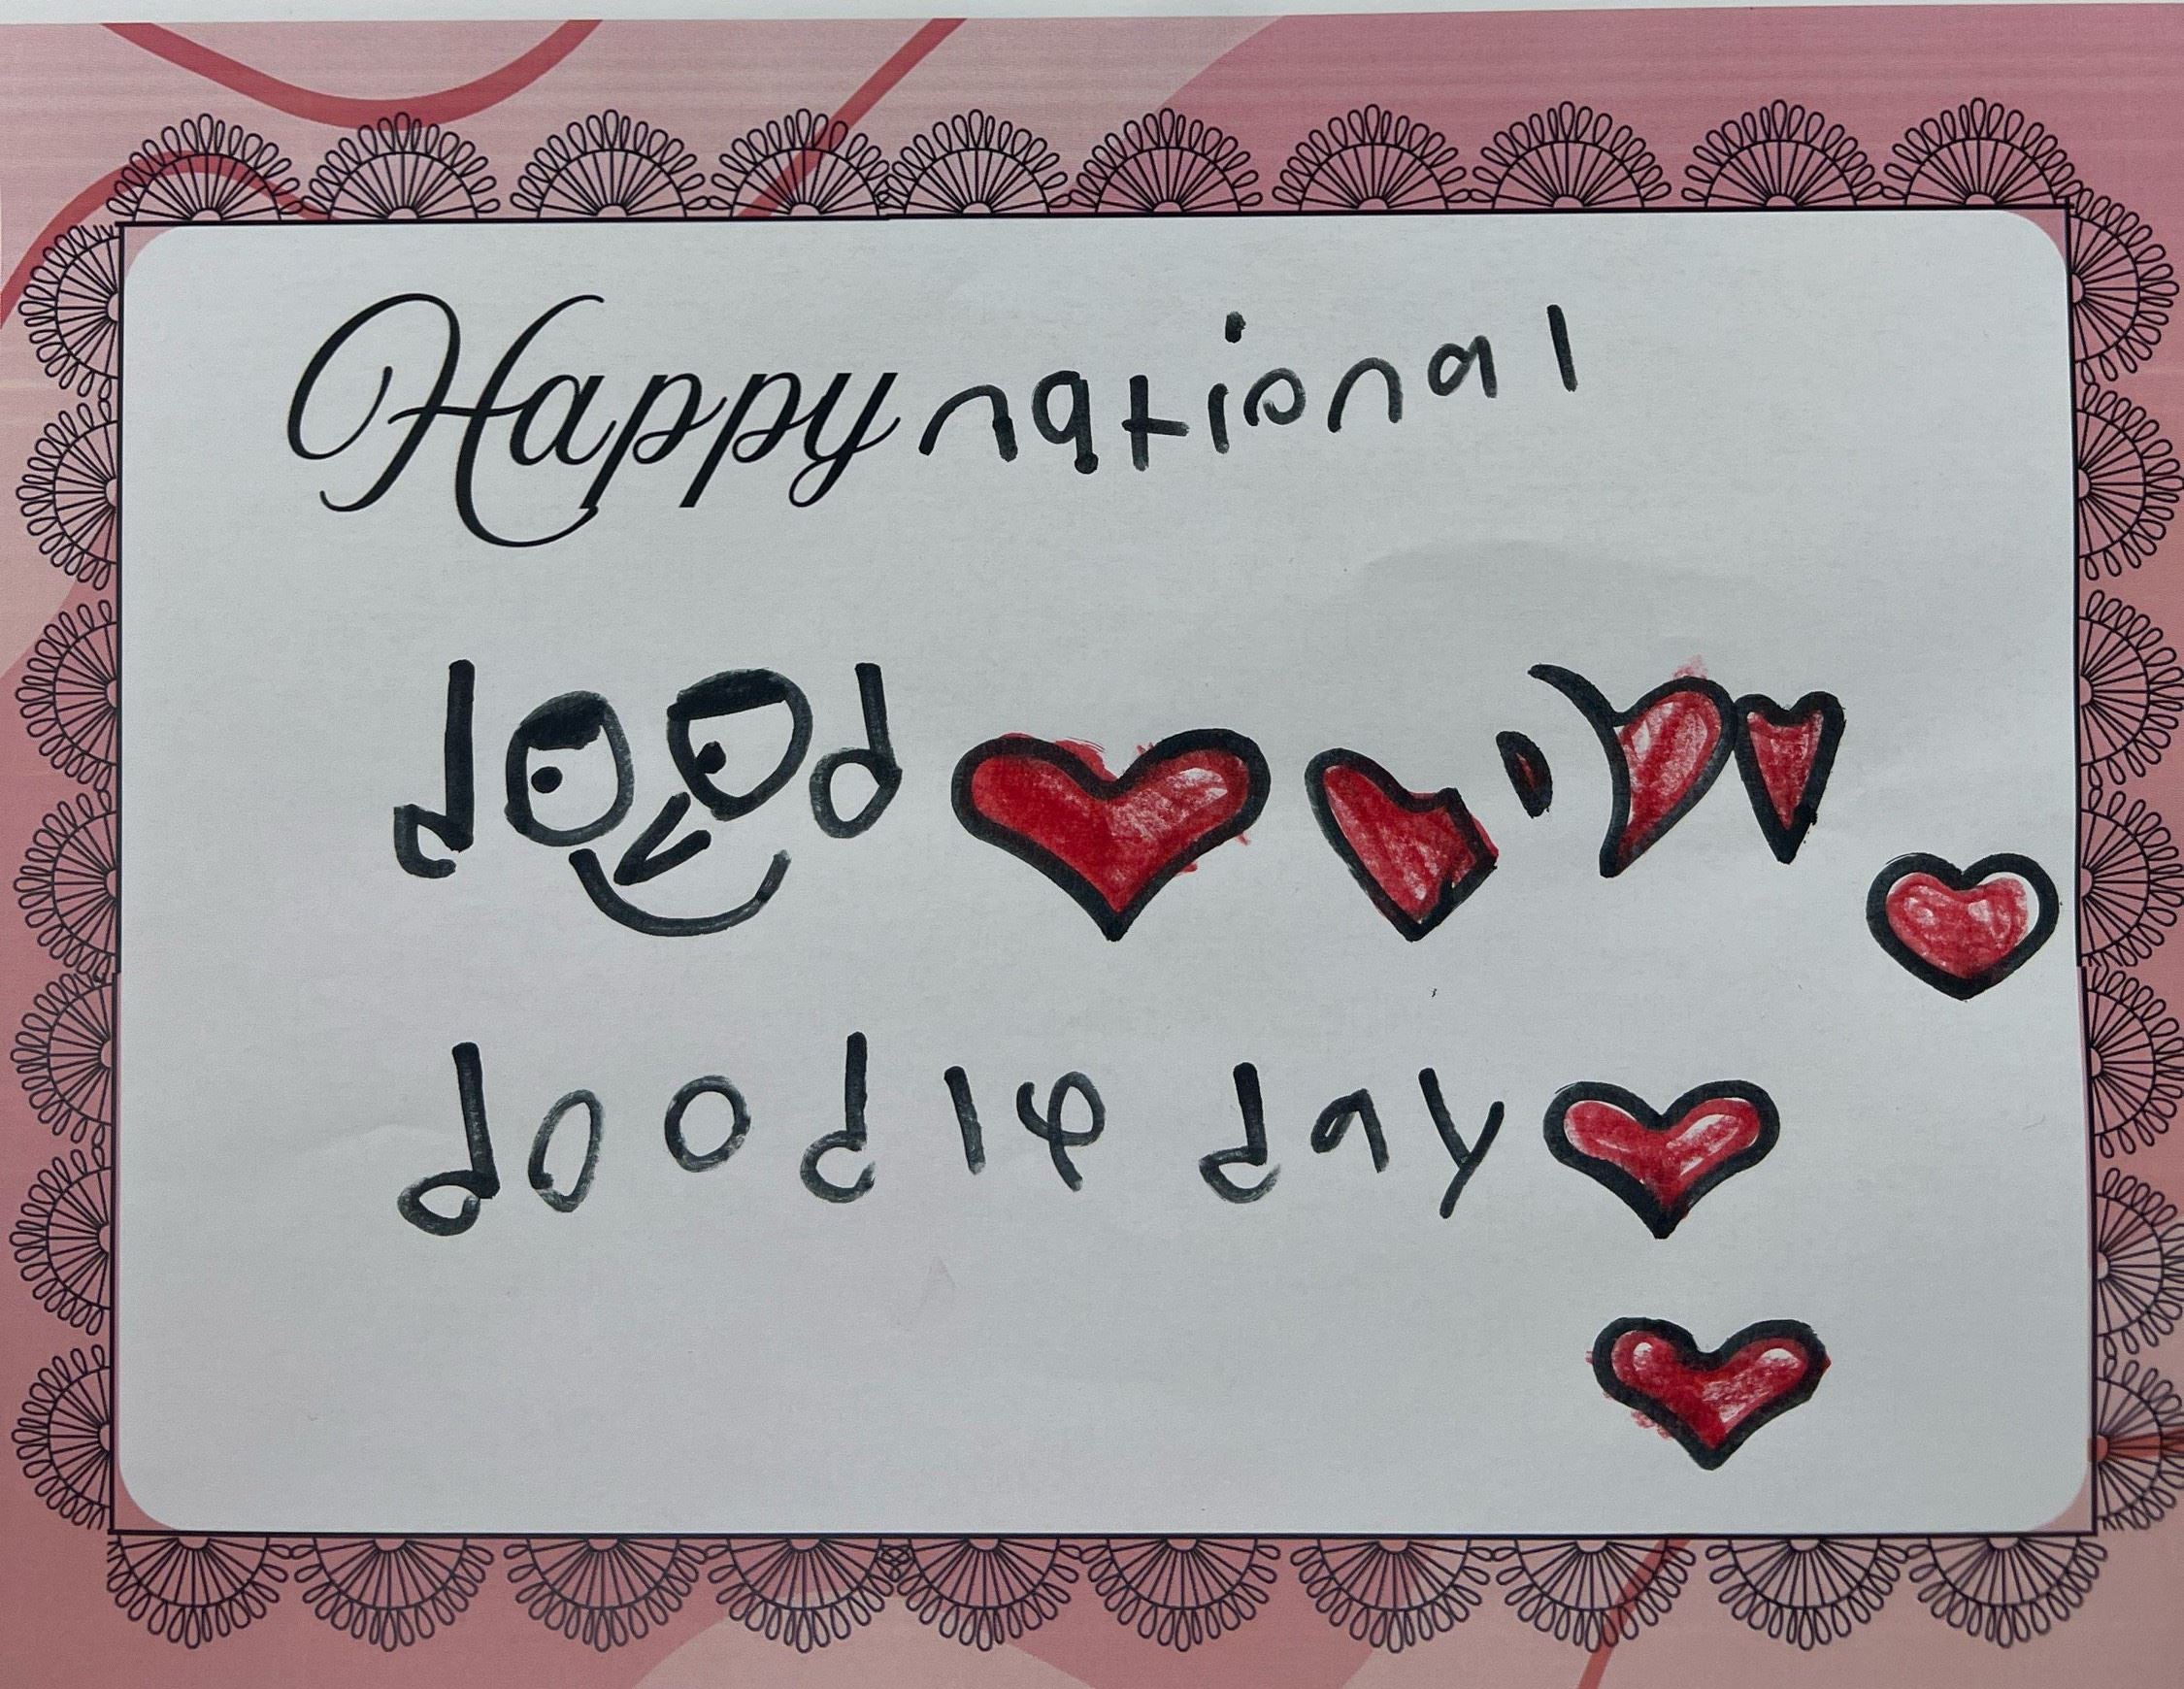 Happy national
dood
doodle day